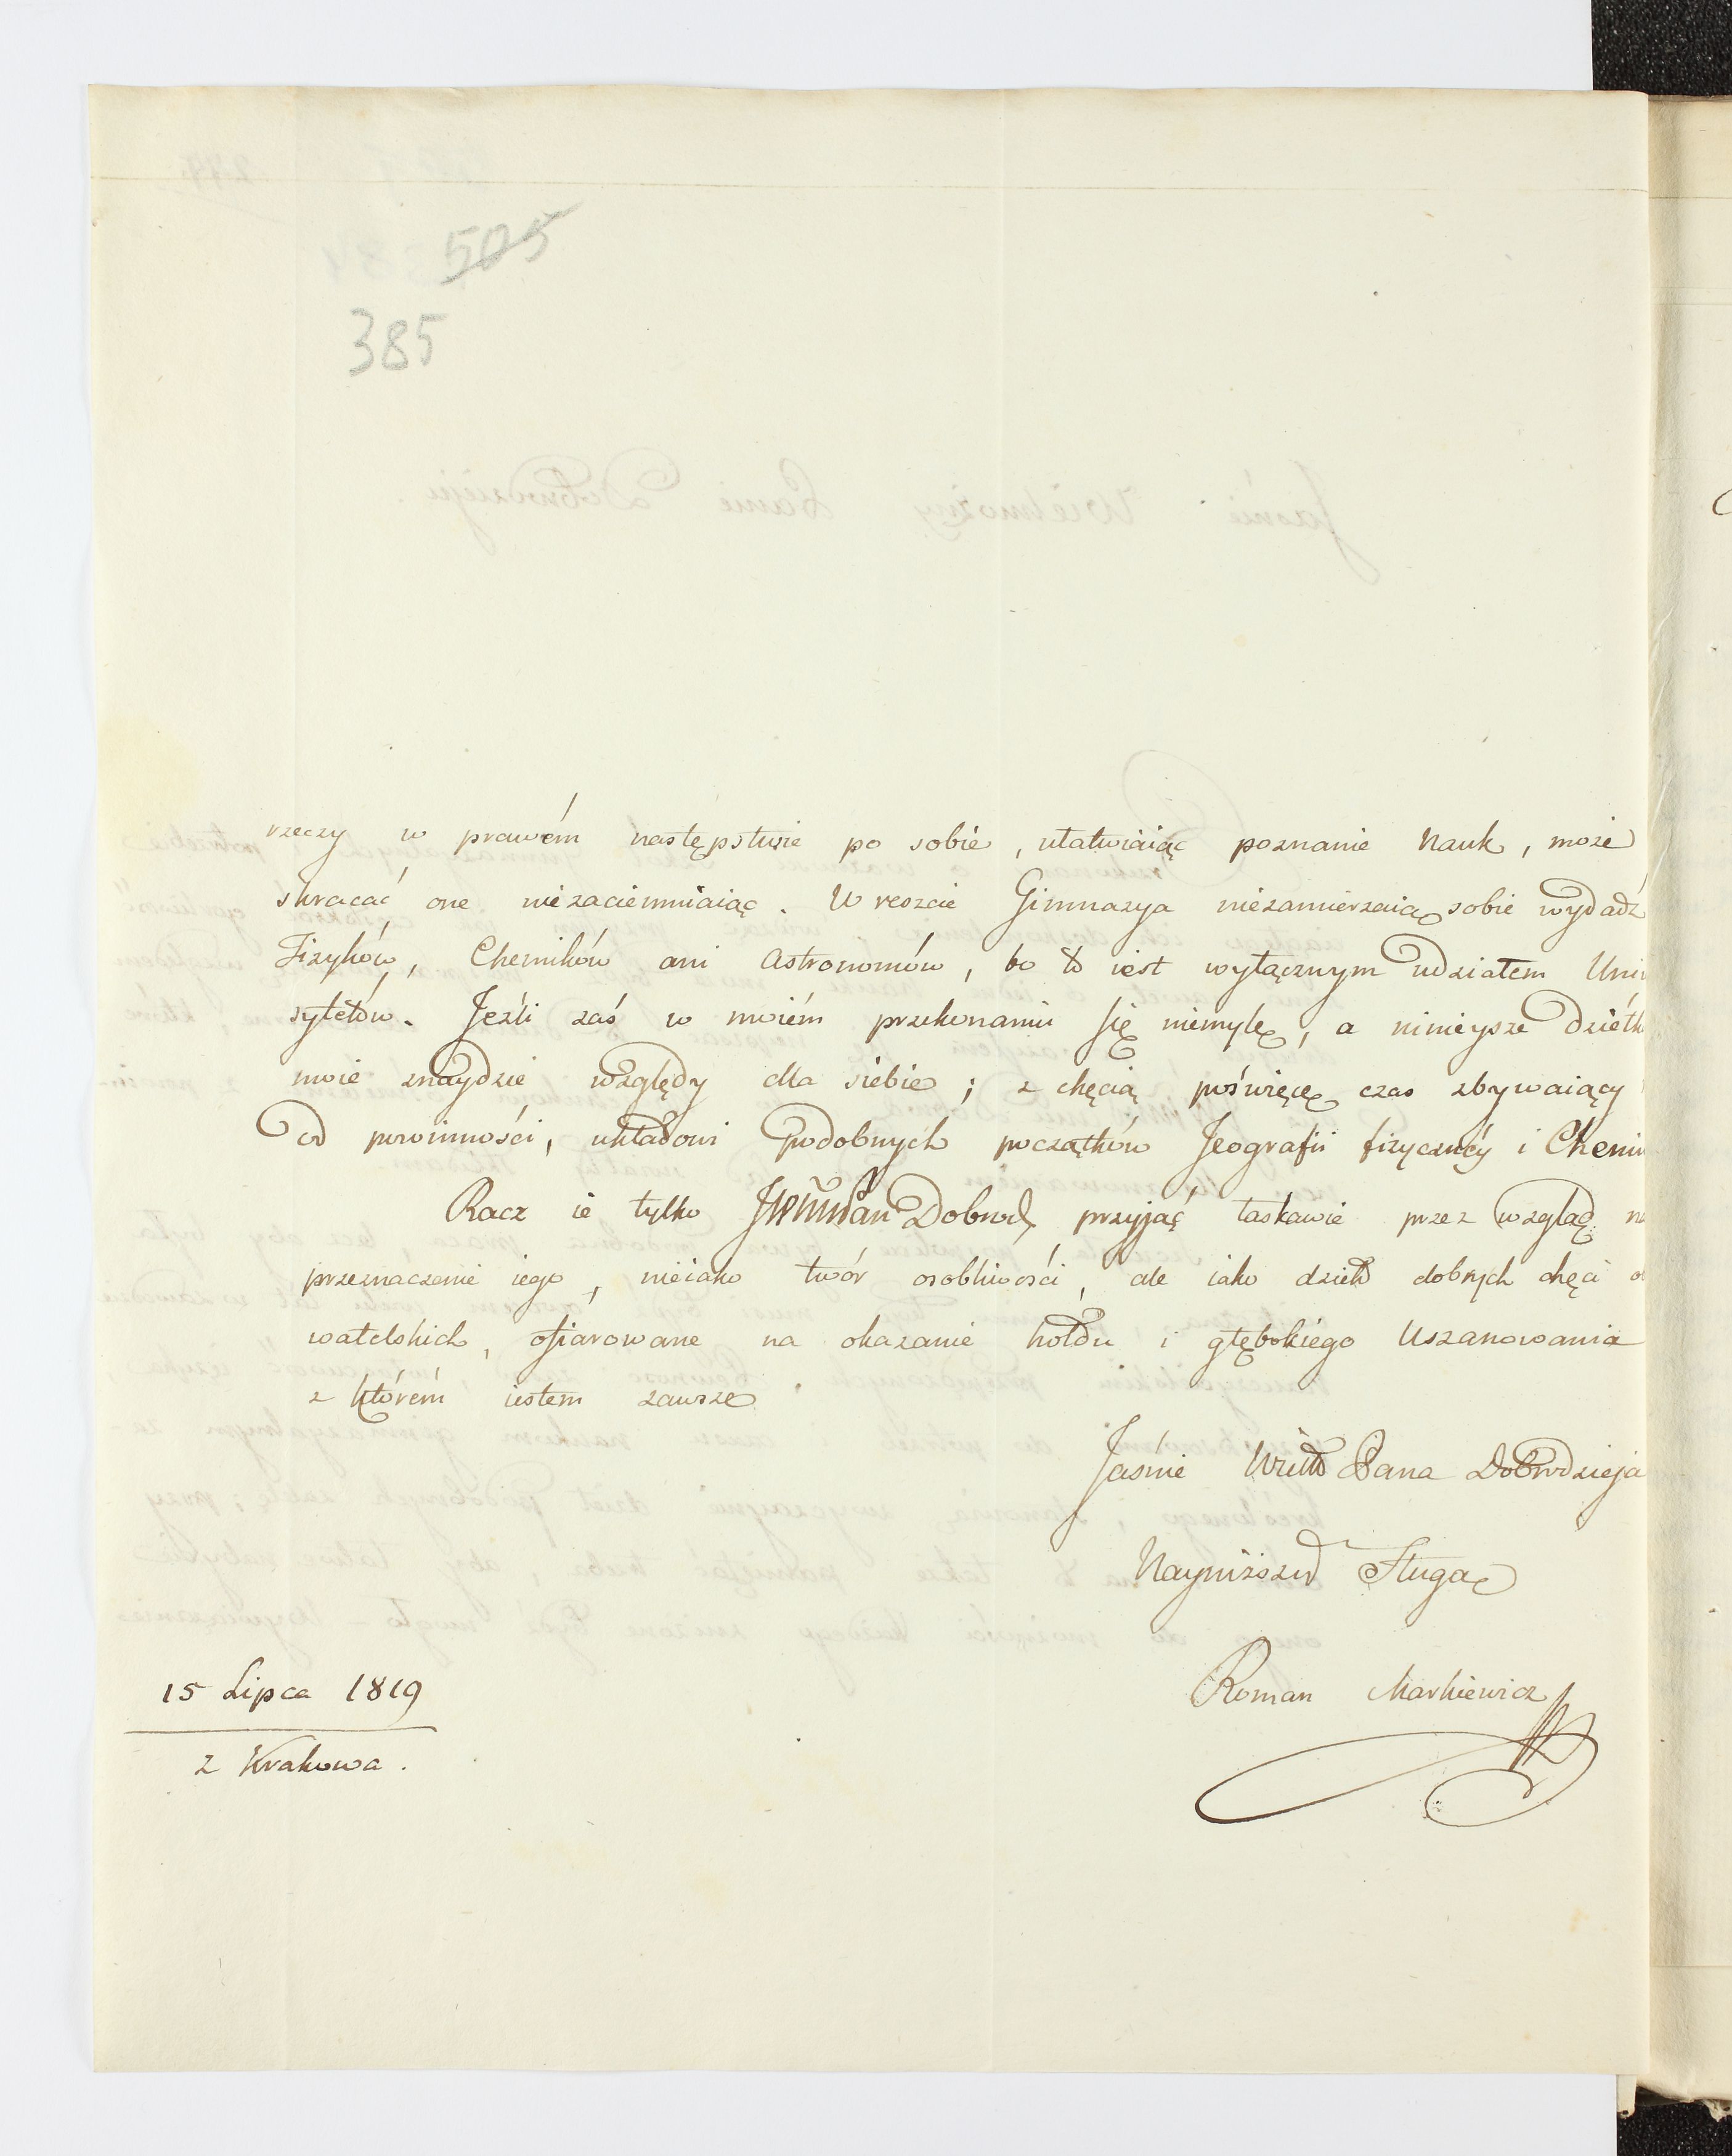 505
385
rzeczy w prawém następstwie po sobie, ułatwiaiąc poznanie Nauk, może
skracać one niezaciemniaiąc. W reszcie Gimnazya niezamierzaią sobie wydadź
Fizyków, Chemików ani Astronomów, bo to iest wyłącznym udziałem Uni
sytetów. Jeźli zaś w moiém przekonaniu się niemylę, a ninieysze Dziełk
moie znaydzie względy dla siebie; z chęcią poświęcę czas zbywaiący
od powinności, układowi podobnych początków Jeografii fizycznéy i Chemi
Racz ie tylko Dobrodz przyjąć łaskawie przez wzgląd na
przeznaczenie iego, nieiako twór osobliwości, ale iako dzieło dobrych chęci o
watelskich, ofiarowane na okazanie hołdu i głębokiego Uszanowania
z którém iestem zawsze
Jaśnie Wielo Pana Dobrodzieja
Nayniższy Sługa
Roman Markiewicz
15 Lipca 1819
z Krakowa.